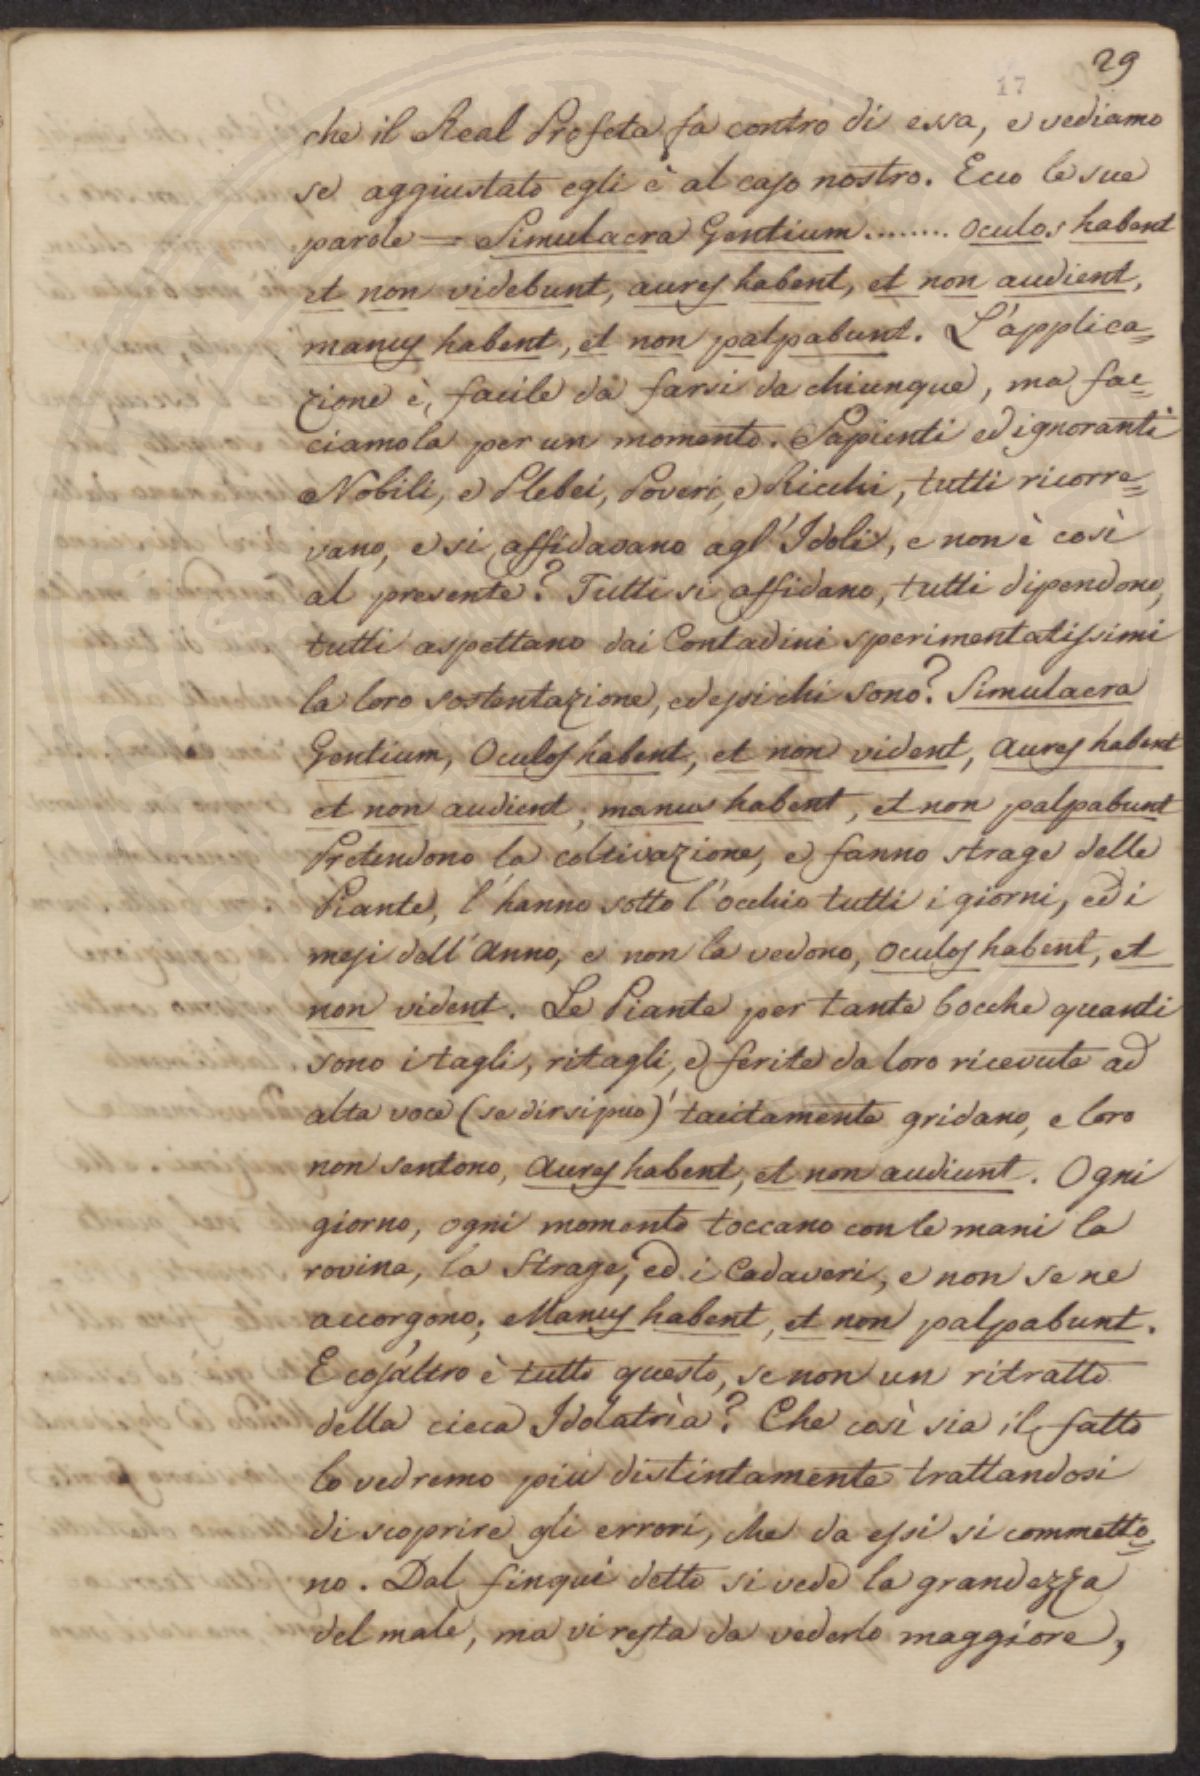 29
17
che il Real Profeta fa contro di essa, e vediamo
se aggiustato egli è al caso nostro. Ecco le sue
parole = Simulacra Gentium ........ oculos habent
et non videbunt, aures habent, et non audient,
manus habent, et non palpabunt. L'applica=
zione è, facile da farsi da chiunque, ma fac=
ciamola per un momento. Sapienti ed ignoranti
Nobili, e Plebei, Poveri, e Ricchi, tutti ricorre=
vano, e si affidavano agl'Idoli, e non è così
al presente? Tutti si affidano, tutti dipendono,
tutti aspettano dai Contadini sperimentatissimi
la loro sostentazione, ed essi chi sono? Simulacra
Gentium, Oculos habent, et non vident, aures habent
et non audient, manus habent, et non palpabunt
Pretendono la coltivazione, e fanno strage delle
Piante, l'hanno sotto l'occhio tutti i giorni, ed i
mesi dell'Anno, e non la vedono, oculos habent, et
non vident. Le Piante per tante bocche quanti
sono i tagli, ritagli, e ferite da loro ricevute ad
alta voce (se dirsi può) tacitamente gridano, e loro
non sentono, aures habent, et non audiunt. Ogni
giorno, ogni momento toccano con le mani la
rovina, la Strage, ed i Cadaveri, e non se ne
accorgono; Manus habent, et non palpabunt.
E cos'altro è tutto questo, se non un ritratto
della cieca Idolatrìa? Che così sia il fatto
lo vedremo più distintamente trattandosi
di scoprire gli errori, che da essi si commetto=
no. Dal finqui detto si vede la grandezza
del male, ma vi resta da vederlo maggiore,